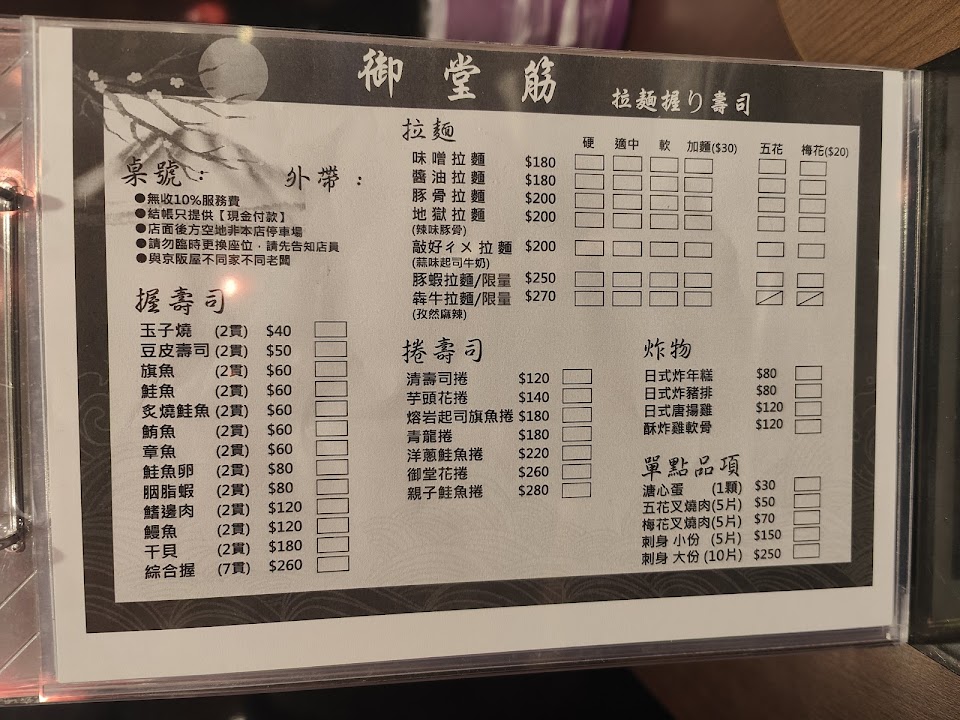 御堂筋 拉麵握り壽司
桌號： 外帶：
●無收10%服務費
●結帳只提供【現金付款】
●店面後方空地非本店停車場
●請勿臨時更換座位，請先告知店員
●與京阪屋不同家不同老闆
握壽司
玉子燒 (2貫) $40
豆皮壽司 (2貫) $50
旗魚 (2貫) $60
鮭魚 (2貫) $60
炙燒鮭魚 (2貫) $60
鮪魚 (2貫) $60
章魚 (2貫) $60
鮭魚卵 (2貫) $80
胭脂蝦 (2貫) $80
鰭邊肉 (2貫) $120
鰻魚 (2貫) $120
干貝 (2貫) $180
綜合握 (7貫) $260
拉麵 硬 適中 軟 加麵($30) 五花 梅花($20)
味噌拉麵 $180
醬油拉麵 $180
豚骨拉麵 $200
地獄拉麵 $200
(辣味豚骨)
敲好ㄔㄨ拉麵 $200
(蒜味起司牛奶)
豚蝦拉麵/限量 $250
犇牛拉麵/限量 $270
(孜然麻辣)
捲壽司
清壽司捲 $120
芋頭花捲 $140
熔岩起司旗魚捲 $180
青龍捲 $180
洋蔥鮭魚捲 $220
御堂花捲 $260
親子鮭魚捲 $280
炸物
日式炸年糕 $80
日式炸豬排 $80
日式唐揚雞 $120
酥炸雞軟骨 $120
單點品項
溏心蛋 (1顆) $30
五花叉燒肉(5片) $50
梅花叉燒肉(5片) $70
刺身 小份 (5片) $150
刺身 大份 (10片) $250